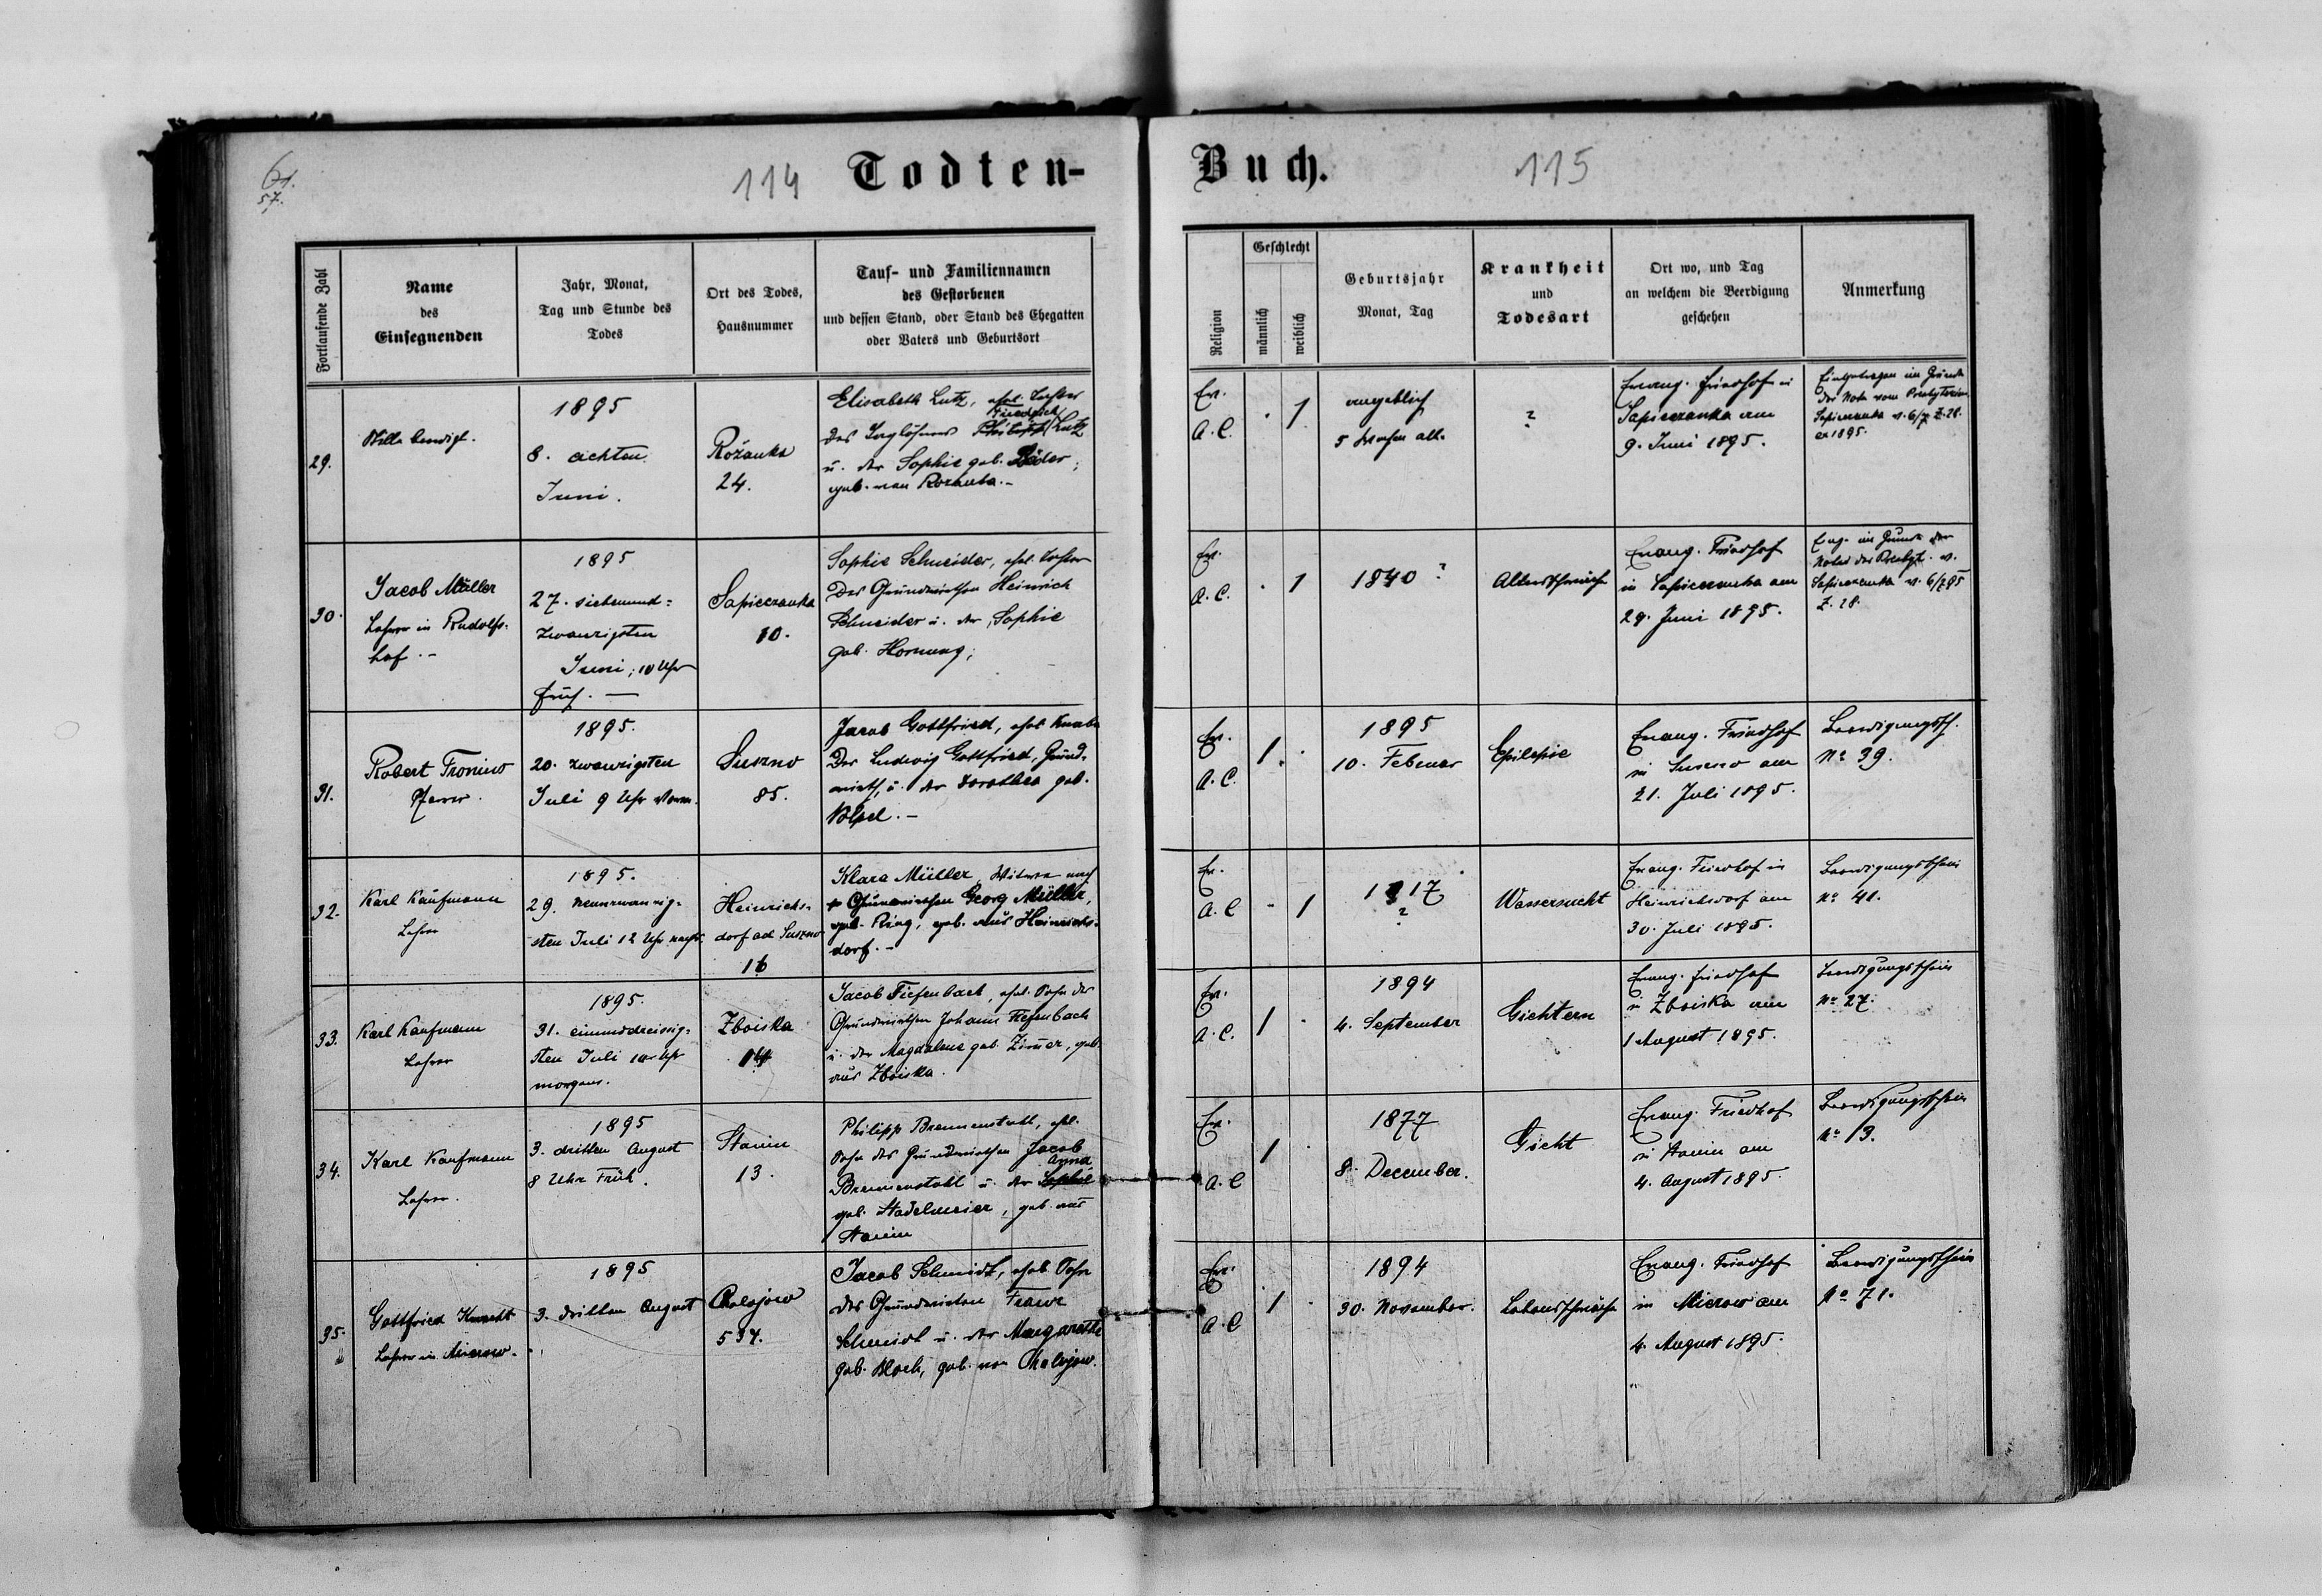 61.
57.
114
Todten-
Buch.
115
Fortlaufende Zahl
Name
des
Einsegnenden
Jahr, Monat,
Tag und Stunde des
Todes
Ort des Todes,
Hausnummer
Tauf- und Familiennamen
des Gestorbenen
und dessen Stand, oder Stand des Ehegatten
oder Vaters und Geburtsort
Religion
Geschlecht
männlich
weiblich
Geburtsjahr
Monat, Tag
Krankheit
und
Todesart
Ort wo, und Tag
an welchem die Beerdigung
geschehen
Anmerkung
29.
Stille beerdigt.
1895
8. achten
Juni.
Rożanka
24.
Elisabeth Lutz, ehel. Tochter
Friedrich
des Taglöhners Philipp Lutz
u. der Sophie geb. Bäder;
geb. von Rozanka.-
Ev.
A. C.
. 1
angeblich
5 Wochen alt.
?
Evang. Friedhof in
Sapieczanka am
9. Juni 1895.
Eingetragen im Grunde
der Note vom Presbyterium
Sapieczanka v. 6/7 Z. 28.
ex 1895.
30.
Jacob Müller
Lehrer in Rudolfs-
hof.-
1895
27. siebenund-
zwanzigsten
Juni; 10 Uhr
früh. —
Sapieczanka
10.
Sophie Schneider, ehel. Tochter
des Grundwirthen Heinrich
Schneider u. der Sophie
geb. Hornung;
Ev.
A. C.
. 1
1840 ?
Altersschwäche
Evang. Friedhof
in Sapieczanka am
29. Juni 1895.
Eng. im Grunde der
Note des Presbyt. v.
Sapieczanka v. 6/7 95
Z. 28.
31.
Robert Fronius
Pfarrer.
1895.
20. zwanzigsten
Juli 9 Uhr Vorm.
Suszno
85.
Jacob Gottfried, ehel. Knabe
des Ludwig Gottfried, Grund-
wirth, u. der Dorothea geb.
Ev.
A. C.
1 .
1895
10. Februar
Epilepsie
Evang. Friedhof
in Suszno am
21. Juli 1895.
Beerdigungssch.
No 39.
32.
Karl Kaufmann
Lehrer
1895.
29. neunzwanzig-
sten Juli 12 Uhr nachts.
Heinrichs-
dorf ad Suszno
16
Klara Müller, Witwe nach
+ Grundwirthen Georg Müller,
geb. Ring, geb. aus Heinrichs-
dorf.-
Ev.
A. C
- 1
1817
?
Wassersucht
Evang. Friedhof in
Heinrichsdorf am
30. Juli 1895.
Beerdigungsschein
No 41.
33.
Karl Kaufmann
Lehrer
1895.
31. einunddreissig-
sten Juli 10 Uhr
morgens.
Zboiska
14
Jacob Tiefenbach, ehel. Sohn des
Grundwirthen Johann Tiefenbach
u. der Magdalena geb. Zimer, geb.
aus Zboiska.
Ev.
A. C.
1 .
1894
4. September
Gichtern
Evang. Friedhof
in Zboiska am
1 August 1895.
Beerdigungsschein
No 27.
34.
Karl Kaufmann
Lehrer.
1895
3. dritten August
8 Uhr Früh.
Stanin
13.
Philipp Brennenstuhl, ehl.
Sohn des Grundwirthen Jacob
Anna
Brennenstuhl u. der Sophie
geb. Stadelmeier, geb. aus
Stanin
Ev.
A. C
1 .
1877
8. December.
Gicht
Evang. Friedhof
in Stanin am
4. August 1895.
Beerdigungsschein
No 13.
35.
Gottfried Knecht
Lehrer in Mierow.
1895
3. dritten August
Cholojow
534.
Jacob Schmidt, ehel Sohn
des Grundwirten Franz
Schmidt u. der Margarethe
geb. Bloch, geb. von Cholojow.
Ev.
A. C
1 .
1894
30. November.
Lebensschwäche
Evang. Friedhof
in Mierow am
4. August 1895.
Beerdigungsschein
No 71.